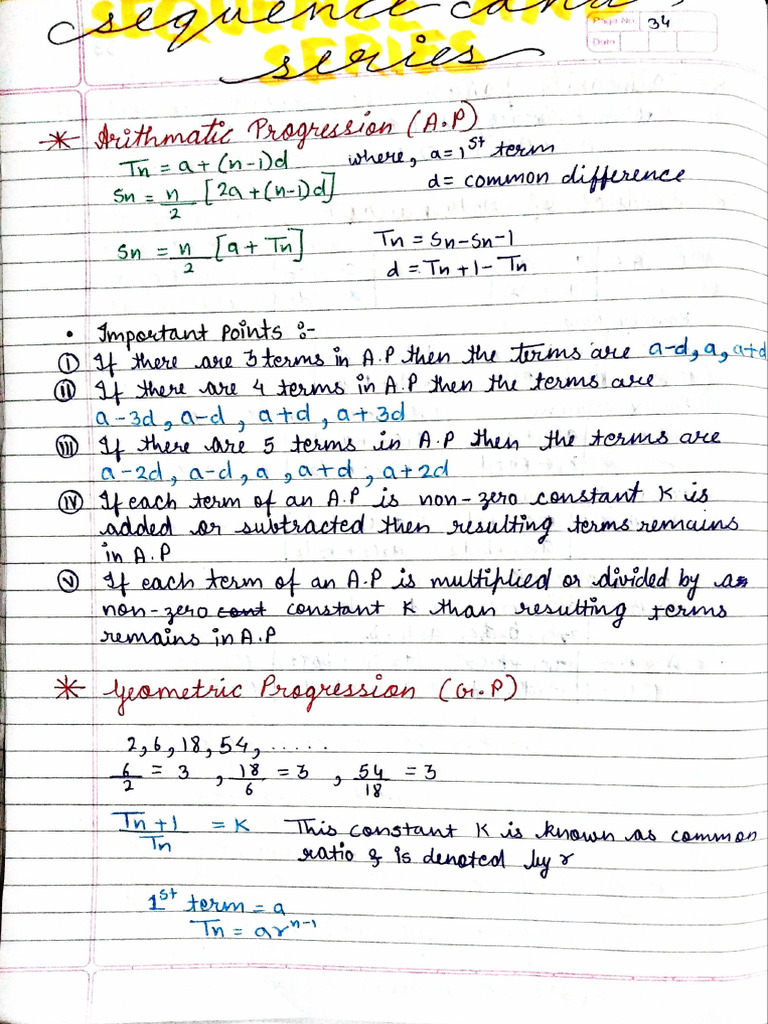 sequence and
series
Page No. 34
Date
* Arithmatic Progression (A.P)
Tn = a + (n-1)d where, a = 1st term
Sn = n/2 [2a + (n-1)d] d = common difference
Sn = n/2 [a + Tn] Tn = Sn - Sn-1
d = Tn+1 - Tn
• Important points :-
(i) If there are 3 terms in A.P then the terms are a-d, a, a+d
(ii) If there are 4 terms in A.P then the terms are
a-3d, a-d, a+d, a+3d
(iii) If there are 5 terms in A.P then the terms are
a-2d, a-d, a, a+d, a+2d
(iv) If each term of an A.P is non-zero constant K is
added or subtracted then resulting terms remains
in A.P
(v) If each term of an A.P is multiplied or divided by a
non-zero cont constant K than resulting terms
remains in A.P
* Geometric Progression (G.P)
2, 6, 18, 54, .....
6/2 = 3, 18/6 = 3, 54/18 = 3
Tn+1/Tn = K This constant K is known as common
ratio & is denoted by r
1st term = a
Tn = ar^n-1